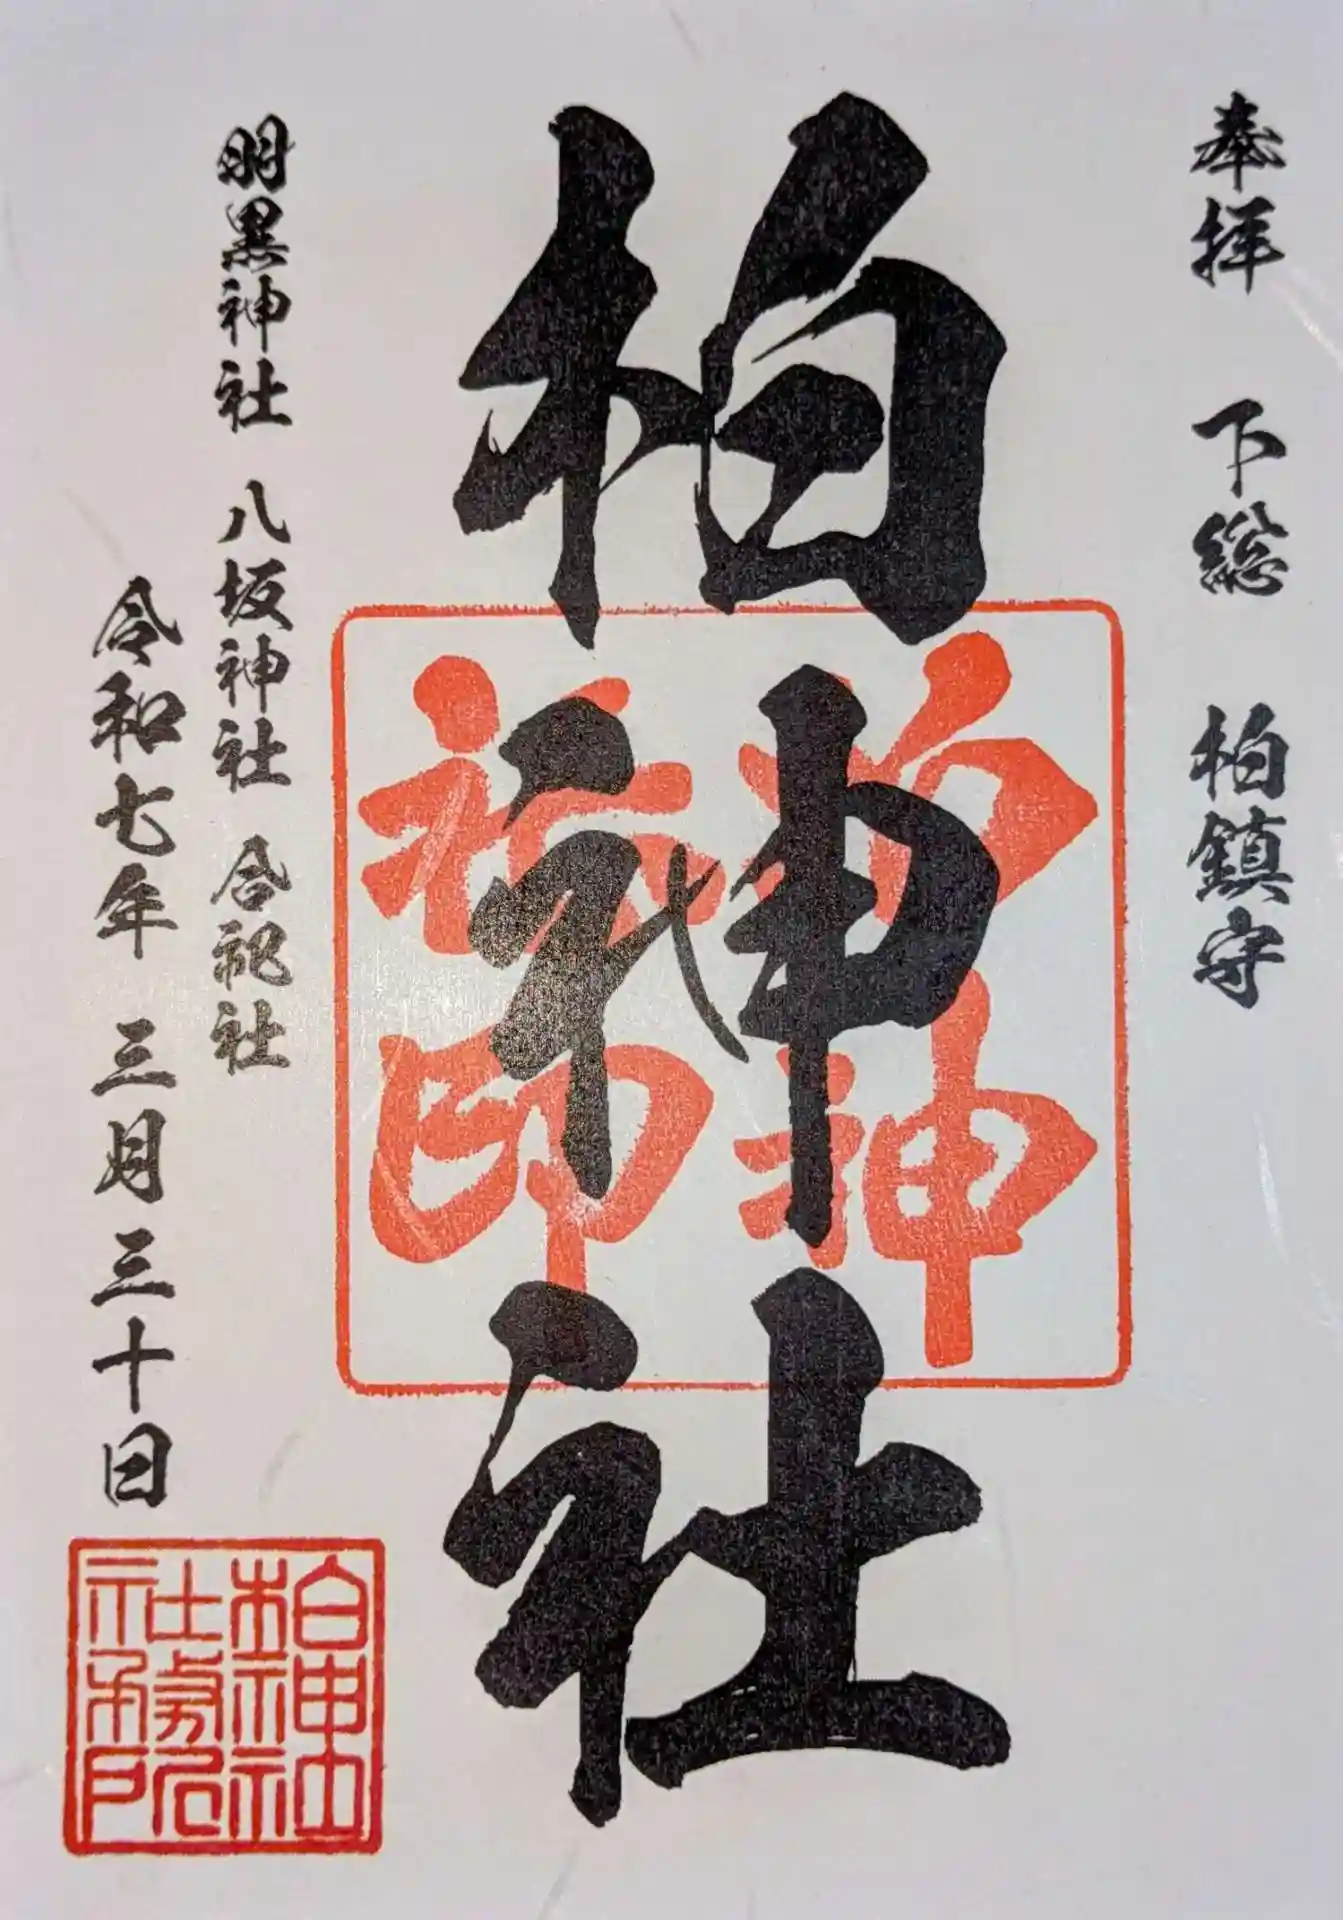 奉拝 下総 柏鎮守
柏神社
柏神
社印
羽黒神社 八坂神社 合祀社
令和七年 三月三十日
柏神社
社務所